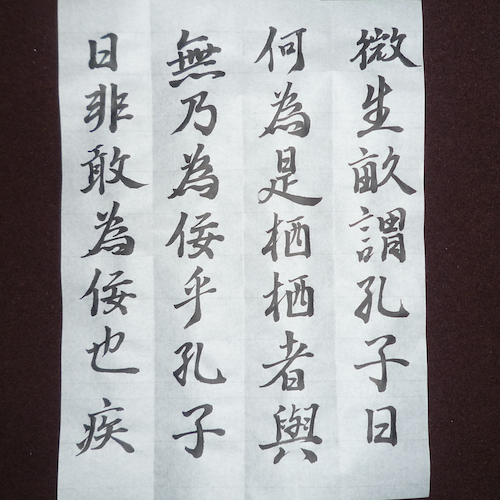 微生畝謂孔子曰
何為是栖栖者與
無乃為佞乎孔子
曰非敢為佞也疾